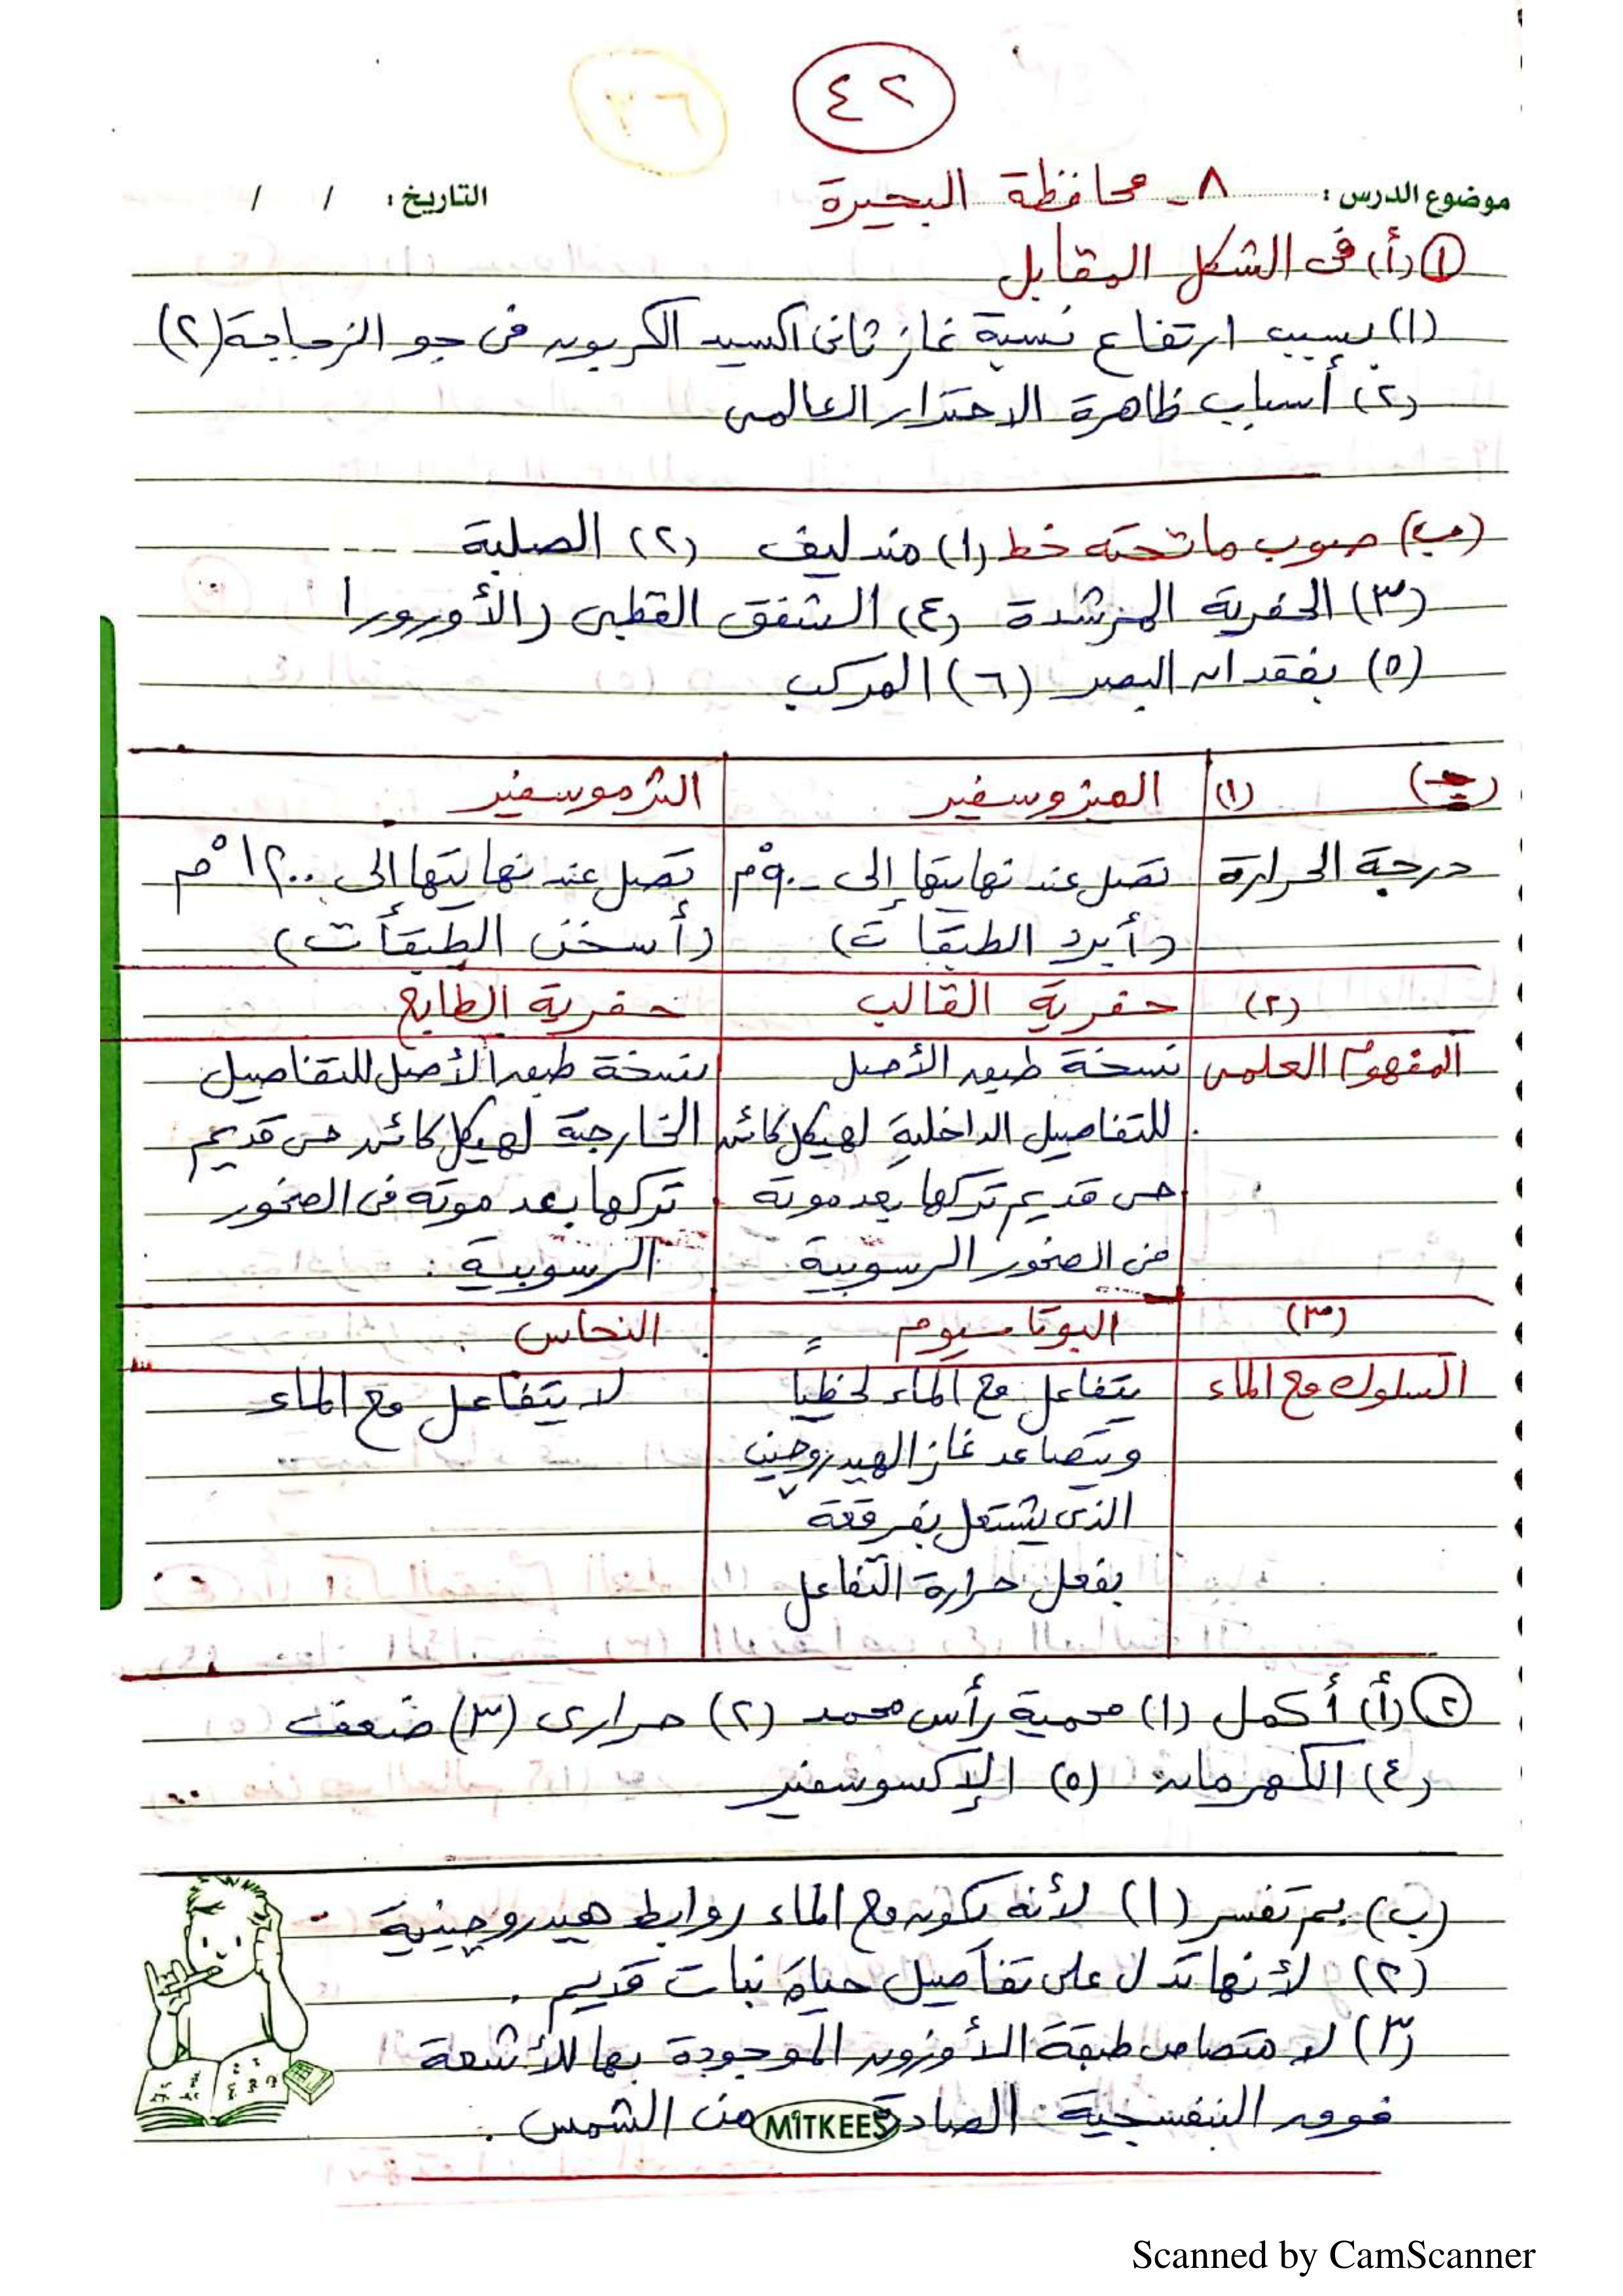 ٤٢
٣٦
موضوع الدرس : ٨ - محافظة البحيرة التاريخ : / /
١ (أ) فى الشكل المقابل
(١) بسبب ارتفاع نسبة غاز ثانى اكسيد الكربون فى جو الزجاجة (٢)
(٢) أسباب ظاهرة الاحترار العالمى
(ب) صوب ما تحته خط (١) مندليف (٢) الصلبة
(٣) الحفرية المرشدة (٤) الشفق القطبى (الأورورا
(٥) بفقدان البصر (٦) المركب
(جـ) (١) الميزوسفير الثرموسفير
درجة الحرارة تصل عند نهايتها إلى -٩٠°م تصل عند نهايتها إلى ١٢٠٠°م
(أبرد الطبقات) (أسخن الطبقات)
(٢) حفرية القالب حفرية الطابع
المفهوم العلمى نسخة طبق الأصل نسخة طبق الأصل للتفاصيل
للتفاصيل الداخلية لهيكل كائن الخارجية لهيكل كائن حى قديم
حى قديم تركها بعد موته تركها بعد موته فى الصخور
فى الصخور الرسوبية الرسوبية .
(٣) البوتاسيوم النحاس
السلوك مع الماء يتفاعل مع الماء لحظيا لا يتفاعل مع الماء
ويتصاعد غاز الهيدروجين
الذى يشتعل بفرقعة
بفعل حرارة التفاعل
٢ (أ) أكمل (١) محمية رأس محمد (٢) حرارى (٣) ضعف
(٤) الكهرمان (٥) الإكسوسفير
(ب) بم تفسر (١) لأنه يكون مع الماء روابط هيدروجينية
(٢) لأنها تدل على تفاصيل حياة نبات قديم .
(٣) لامتصاص طبقة الأوزون الموجودة بها للأشعة
فوق البنفسجية الصادرة من الشمس .
MITKEES
Scanned by CamScanner